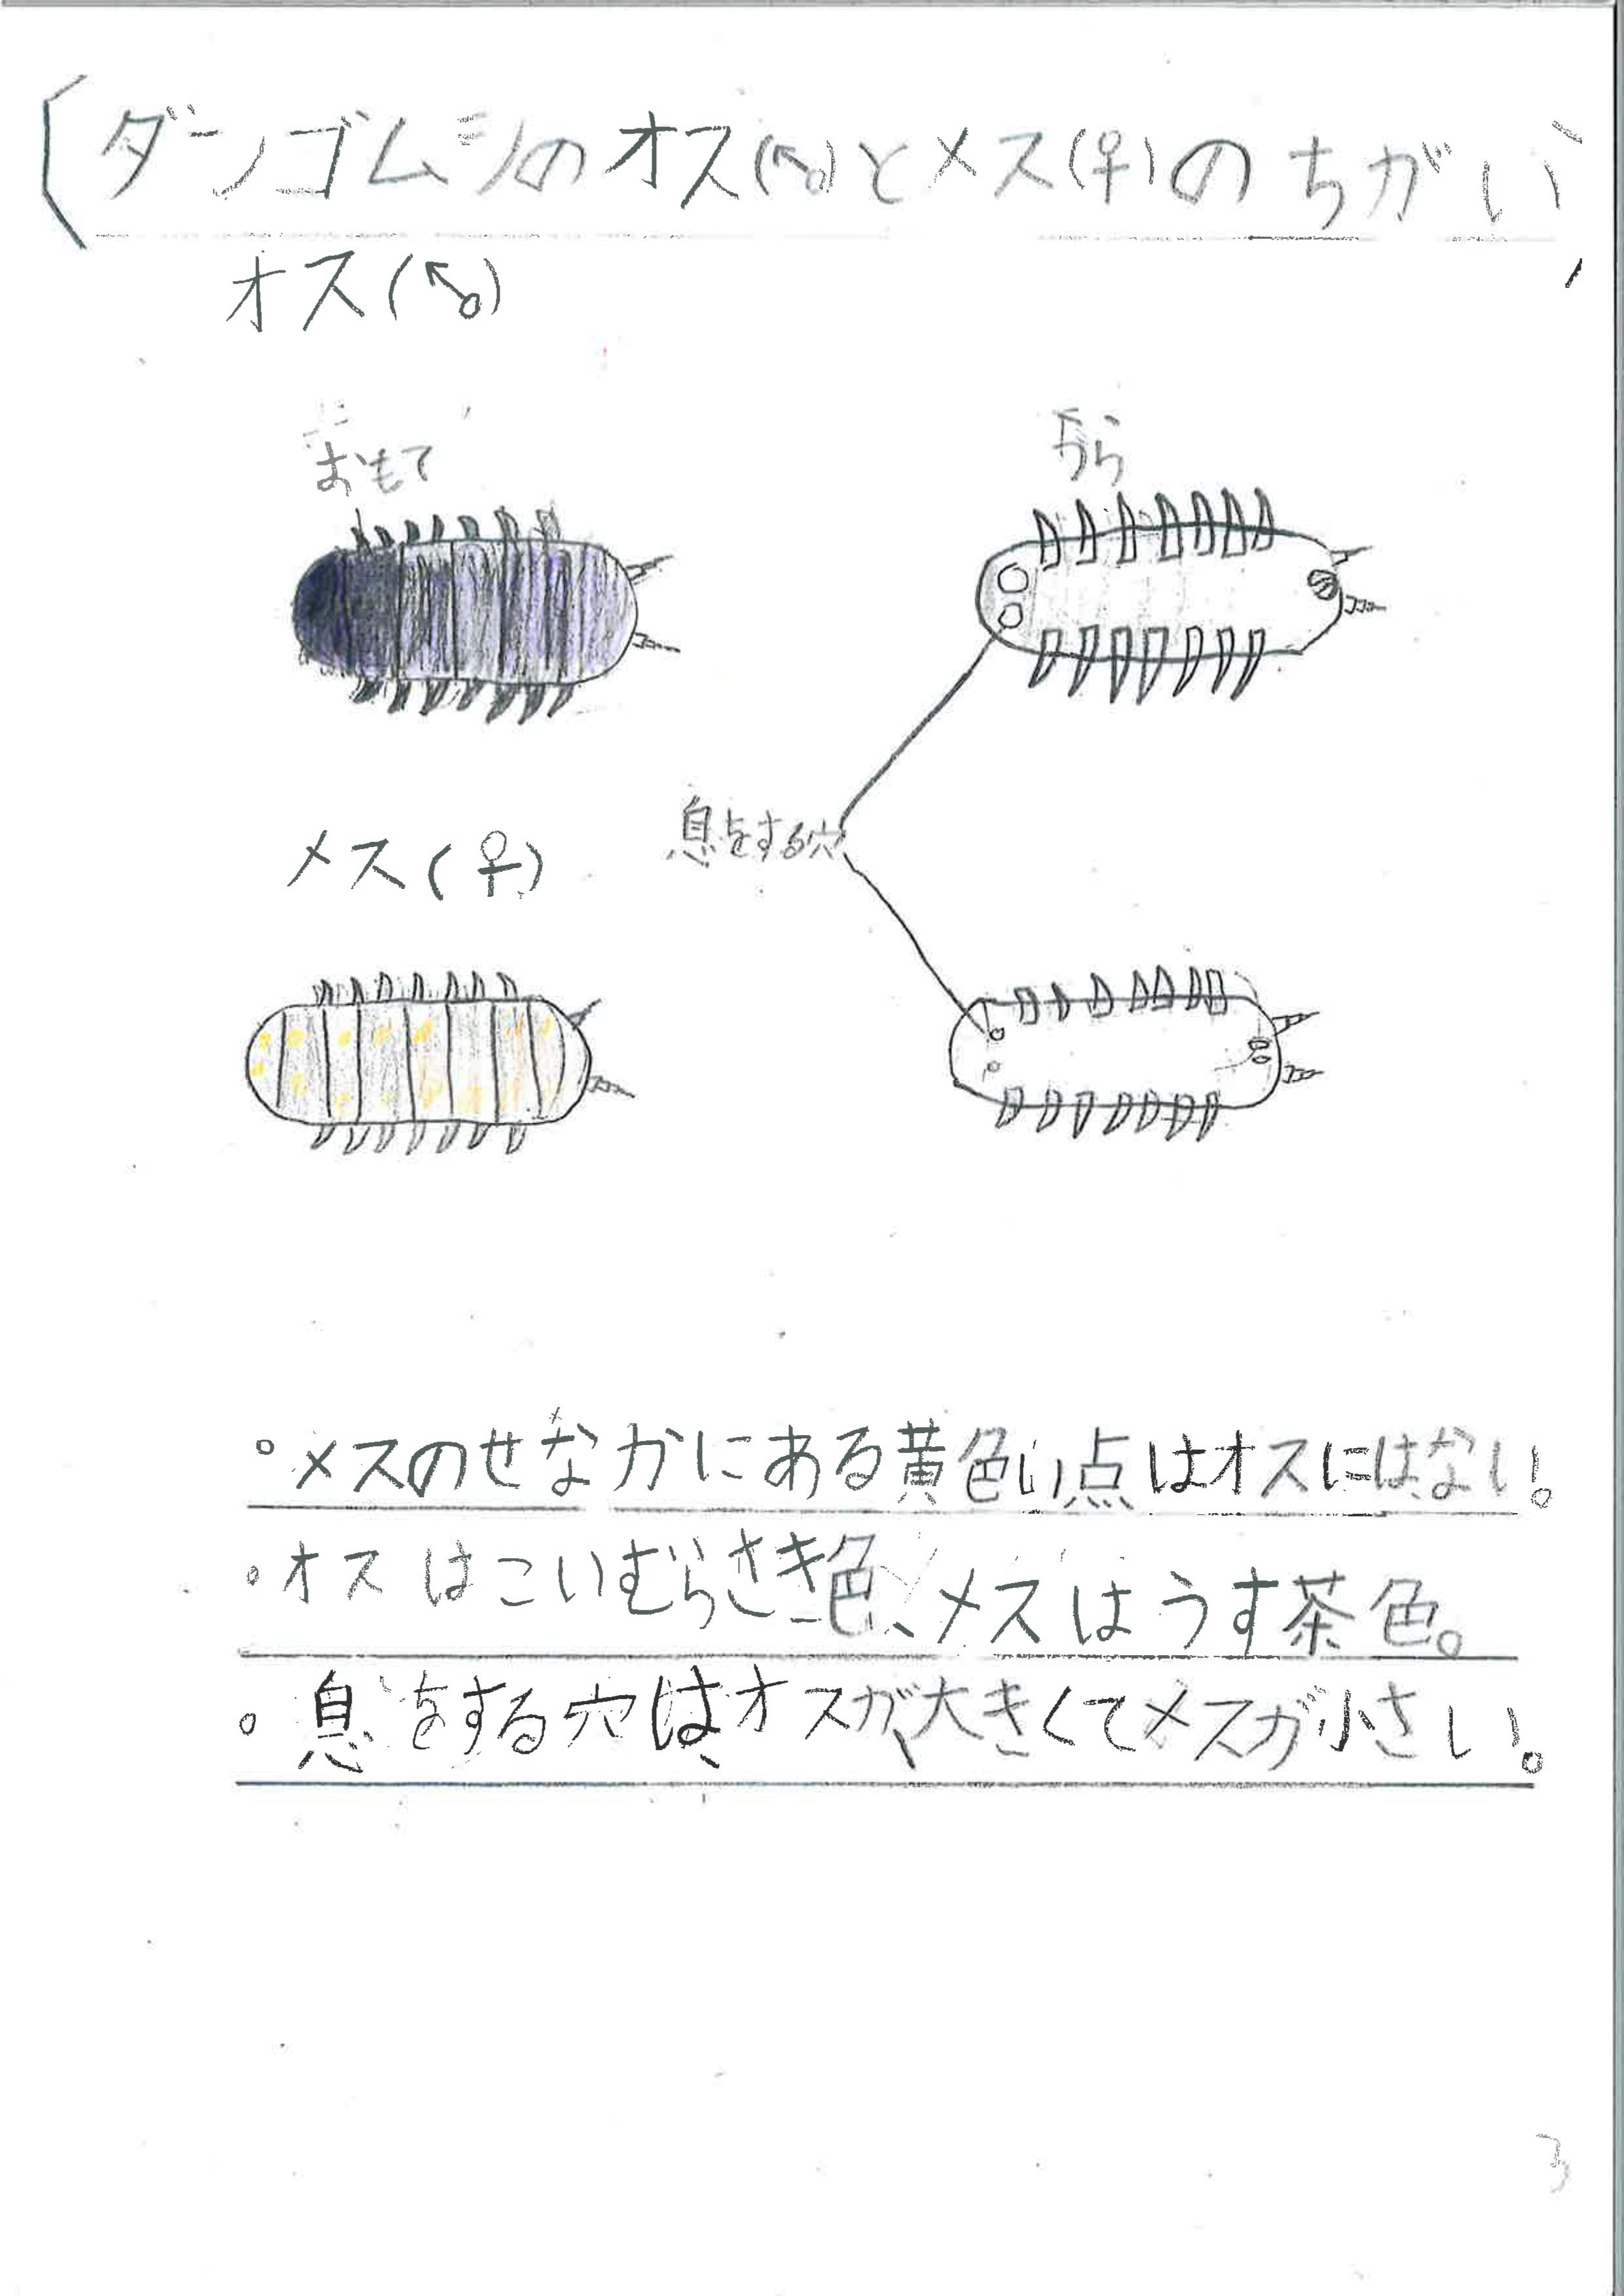 〔ダンゴムシのオス(♂)とメス(♀)のちがい〕
オス(♂)
おもて
うら
息をする穴
メス(♀)
。メスのせなかにある黄色い点はオスにはない。
。オスはこいむらさき色、メスはうす茶色。
。息をする穴は、オスが、大きくてメスが小さい。
3